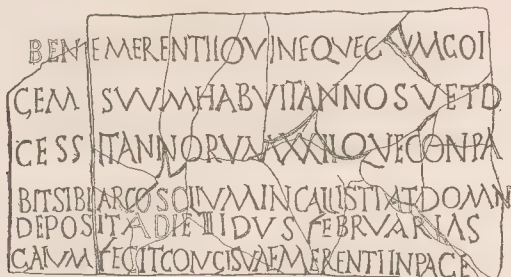 BENEMERENTIIOVINEQVECVMCOI
CEM SVVMHABVITANNOSVETD
CESSITANNORVMXXIIQVECONPA
BITSIBIARCOSOLIVMINCALLISTIATDOMN
DEPOSITADIEIIIIDVSFEBRVARIAS
CAIVMFECITCOVGISVAEMERENTIINPACE